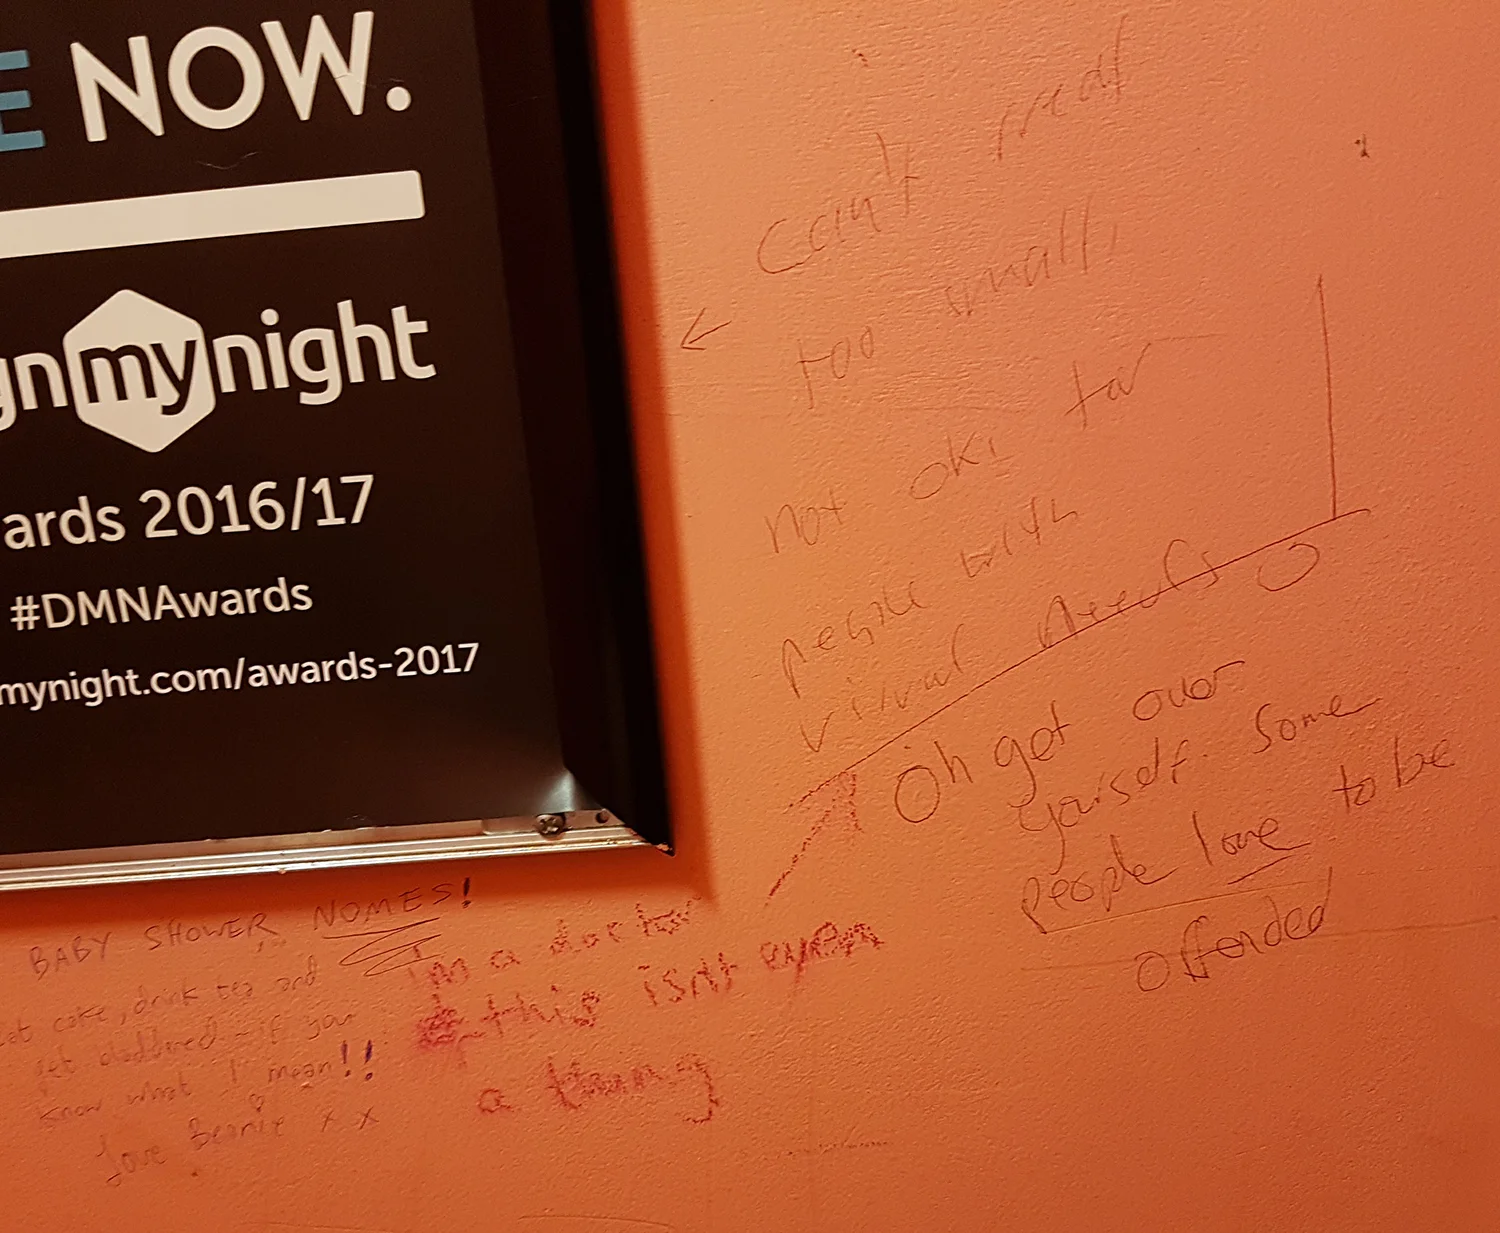 E NOW.
gnmynight
ards 2016/17
#DMNAwards
mynight.com/awards-2017
Can't read
too small,
not oki for
people with
visual needs
Oh get over
yourself. Some
people love to be
offended
BABY SHOWER NOMES!
eat cake, drink tea and
get bladdered - if you
know what I mean!!
Love Bernie x x
I'm a doctor
& this isnt even
a thing